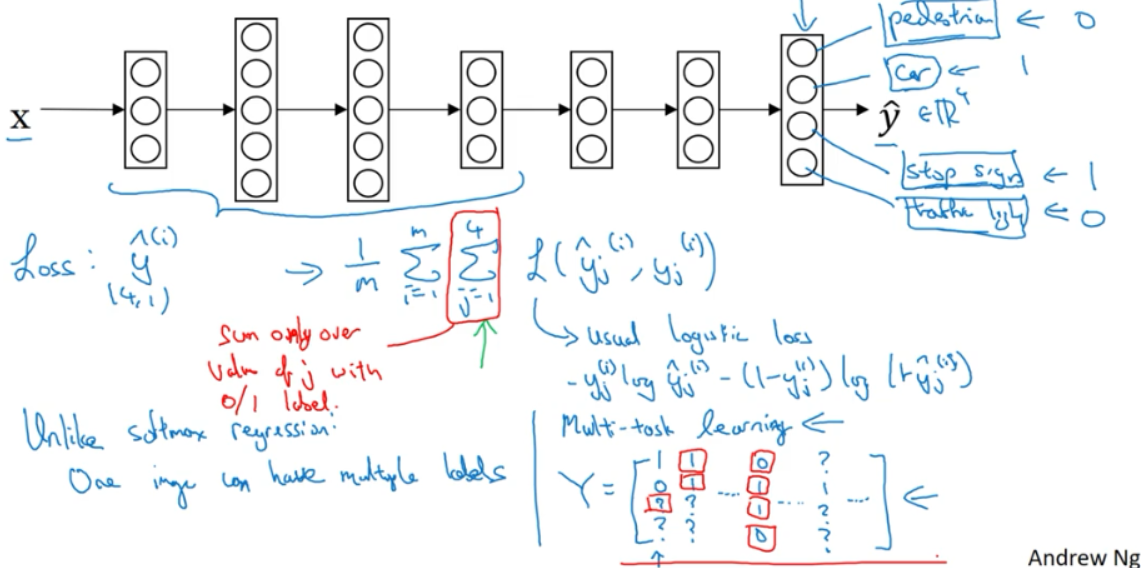 pedestrian ← 0
car ← 1
x
ŷ ∈ ℝ⁴
stop sign ← 1
traffic light ← 0
Loss: ŷ⁽ⁱ⁾ → 1/m ∑ᵢ₌₁ᵐ ∑ⱼ₌₁⁴ ℒ(ŷⱼ⁽ⁱ⁾, yⱼ⁽ⁱ⁾)
(4,1)
Sum only over
value of j with
0/1 label.
usual logistic loss
- yⱼ⁽ⁱ⁾ log ŷⱼ⁽ⁱ⁾ - (1-yⱼ⁽ⁱ⁾) log (1-ŷⱼ⁽ⁱ⁾)
Unlike softmax regression:
One image can have multiple labels
Multi-task learning ←
1 1 0 ?
Y = 0 1 .... 1 .... 1 .... ←
? ? 1 ?
? ? 0 ?
Andrew Ng